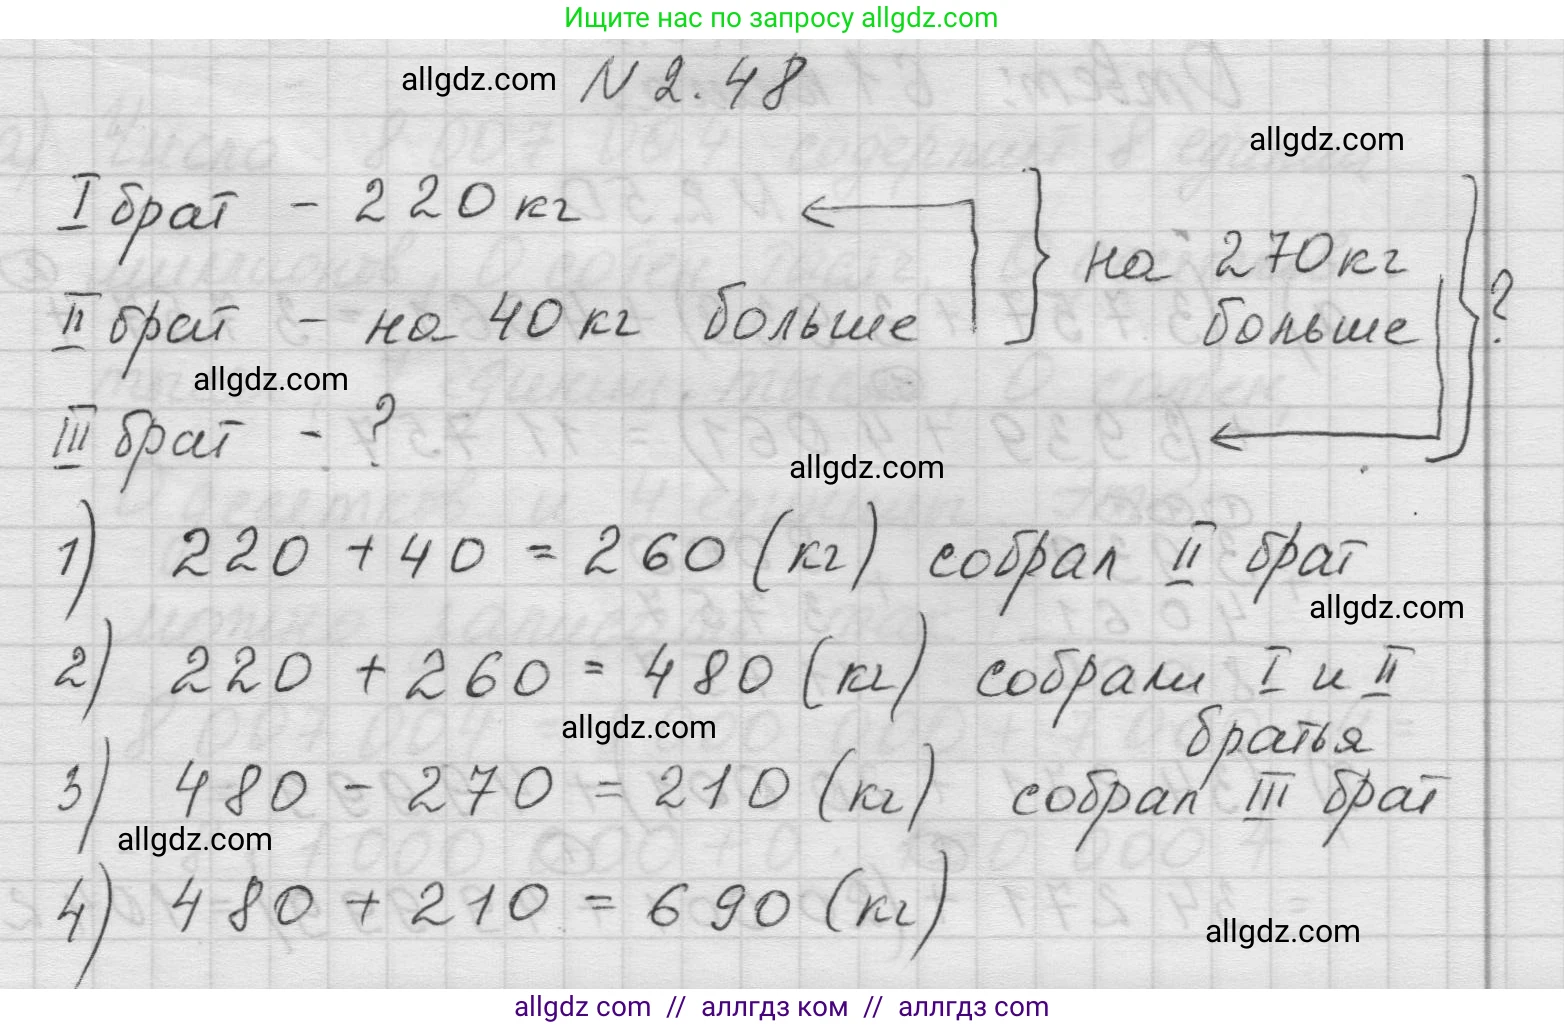 Ищите нас по запросу allgdz.com
allgdz.com
N 2.48
allgdz.com
I брат - 220 кг
на 270 кг
II брат - на 40 кг больше
больше
?
allgdz.com
III брат - ?
allgdz.com
1) 220 + 40 = 260 (кг) собрал II брат
allgdz.com
2) 220 + 260 = 480 (кг) собрали I и II
allgdz.com
братья
3) 480 - 270 = 210 (кг) собрал III брат
allgdz.com
4) 480 + 210 = 690 (кг)
allgdz.com
allgdz com // аллгдз ком // аллгдз.com